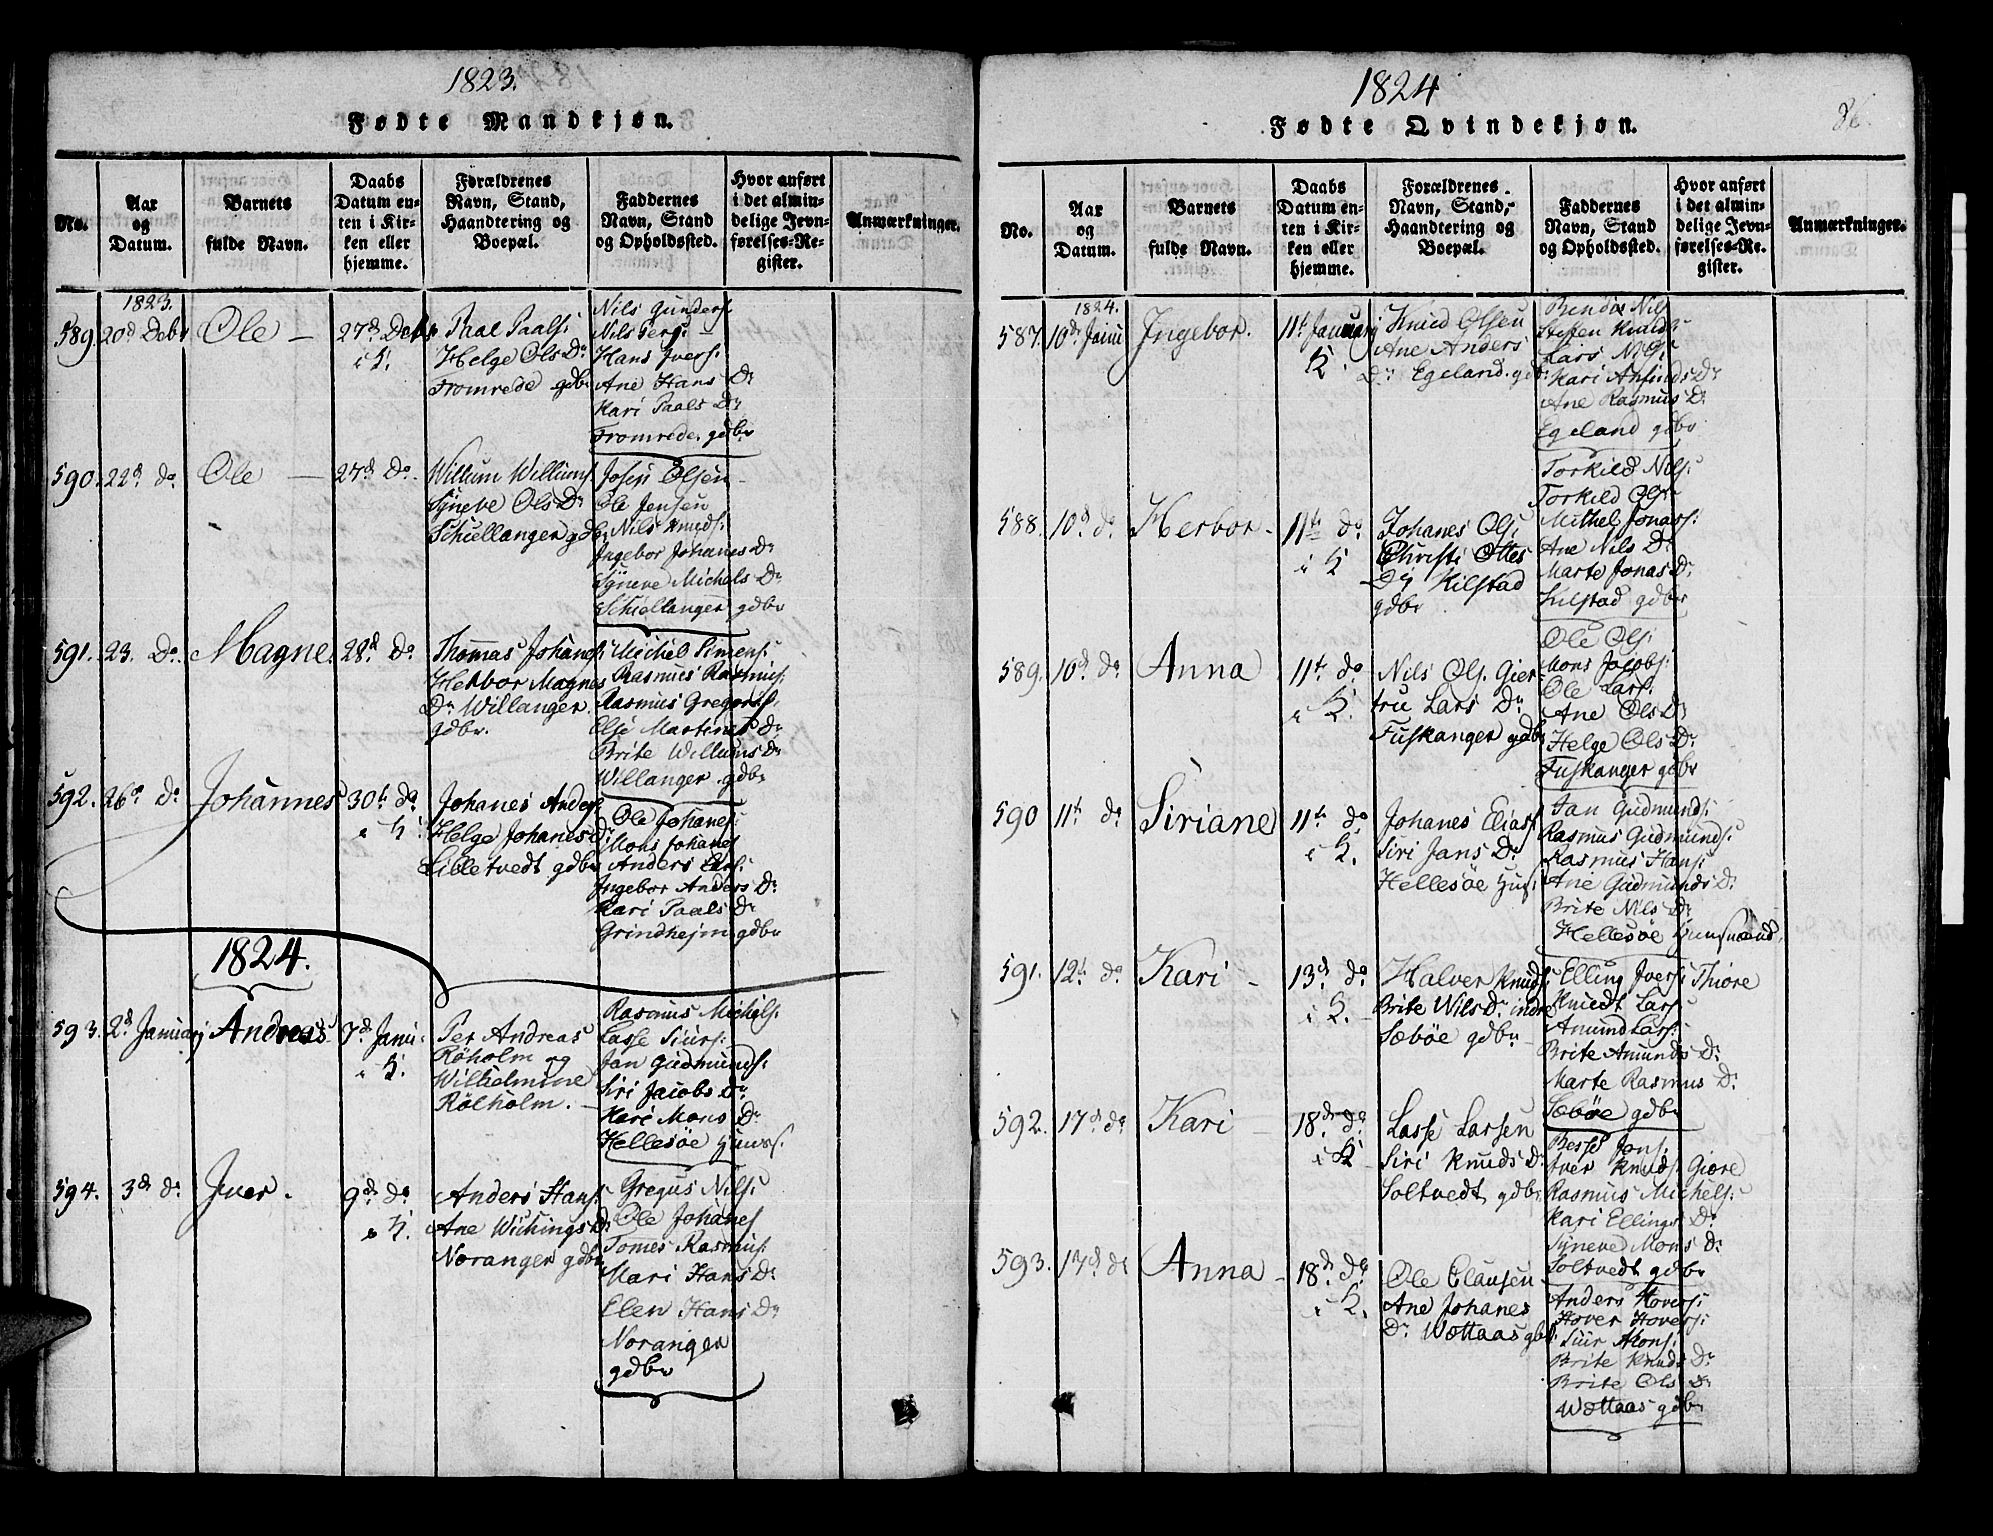 1823.
Fødte Mandkjøn.
No.
Aar og Datum.
Barnets fulde Navn.
Daabs Datum enten i Kirken eller hjemme.
Forældrenes Navn, Stand, Haandtering og Boepæl.
Faddernes Navn, Stand og Opholdssted.
Hvor anført i det almindelige Jevnførelses-Register.
Anmærkninger.
1823.
589. 20d Debr Ole — 27d Debr i K.
Paal Paals:
Helge Ols Dr
Fromrede gdbr
Nils Gunders:
Nils Pers:
Hans Ivers:
Ane Hans Dr
Kari Paals Dr
Fromrede gdbr
590. 22d do Ole — 27d do
Willum Willums:
Syneve Ols Dr
Schiellanger gdbr
Josep Olsen
Ole Jensen
Nils Knuds:
Ingebor Johanes Dr
Syneve Michels Dr
Schiellanger gdbr
591. 23. do. Magne. 28d do
Thomas Johanes:
Herbor Magnes
Dr Willanger
gdbr.
Michel Simens:
Rasmus Rasmus:
Rasmus Gregorius:
Olse Martines Dr
Brite Willums Dr
Willanger gdbr
592. 26d do Johannes 30te do i K.
Johanes Anders:
Helge Johanes Dr
Lilletvedt gdbr
Ole Johanes:
Mons Johanes
Anders Ols:
Ingebor Anders Dr
Kari Paals Dr
Grindhejm gdbr
1824.
593. 2d Januarj Andreas 7d Janu: i K.
Per Andreas
Røholm og
Wilhelmine
Rølholm. —
Rasmus Michels:
Lasse Siurs:
Jan Gudmunds:
Siri Jacobs Dr
Kari Mons Dr
Hellesøe Huuss.
594. 3d do Iver. 9d do i K.
Anders Hans:
Ane Wichings Dr
Noranger gdbr
Gregus Nils:
Ole Johanes
Tomes Rasmus:
Mari Hans Dr
Elen Hans Dr
Noranger
gdbr
1824
86.
Fødte Qvindekjøn.
No.
Aar og Datum.
Barnets fulde Navn.
Daabs Datum enten i Kirken eller hjemme.
Forældrenes Navn, Stand, Haandtering og Boepæl.
Faddernes Navn, Stand og Opholdssted.
Hvor anført i det almindelige Jevnførelses-Register.
Anmærkninger.
1824.
587. 10de Janu Ingebor. 11te Januarj K.
Knud Olsen
Ane Anders
Dr Egeland gdbr
Nils
Steffen Knuds:
Lars Nils:
Kari Anfinds Dr
Ane Rasmus Dr
Egeland gdbr
588. 10d do Herbor — 11te do i K
Johanes Ols:
Christi Ottes
Dr Kilstad
gdbr
Torkild Nils:
Torkild Ols:
Mithel Jonas:
Ane Nils Dr
Marte Jonas Dr
Kilstad gdbr
589. 10d do Anna 11te do i K.
Nils Ols. Gier-
tru Lars Dr
Fuskanger gdbr
Ole Ols:
Mons Jacobs:
Ole Lars:
Ane Ols Dr
Helge Ols Dr
Fuskanger gdbr
590 11te do Siriane 11te do i K.
Johanes Elias:
Siri Jans Dr
Hellesøe Huus:
Jan Gudmunds:
Rasmus Gudmunds:
Rasmus Hans:
Ane Gudmunds Dr
Brite Nils Dr
Hellesøe Huusmænd.
591. 12te do Kari — 13d do i K.
Halver Knuds:
Brite Nils Dr indre
Sæbøe gdbr
Elling Ivers: Thiore
Knudt Lars:
Amund Lars:
Brite Amunds Dr
Marte Rasmus Dr
Sæbøe gdbr
592. 17d do Kari — 18de do i K
Lasse Larsen
Siri Knuds Dr
Soltvedt gdbr
Besse Jons:
Iver Knuds: Giøre
Rasmus Michels:
Kari Ellings Dr
Syneve Mons Dr
Soltvedt gdbr
593. 17d do Anna — 18de do i K.
Ole Clausen
Ane Johanes
Dr Wottaas gdbr
Anders Hovers:
Hover Hovers:
Siur Mons:
Brite Knuds Dr
Brite Ols Dr
Wottaas gdbr